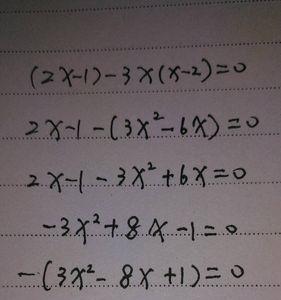 (2x-1)-3x(x-2)=0
2x-1-(3x²-6x)=0
2x-1-3x²+6x=0
-3x²+8x-1=0
-(3x²-8x+1)=0